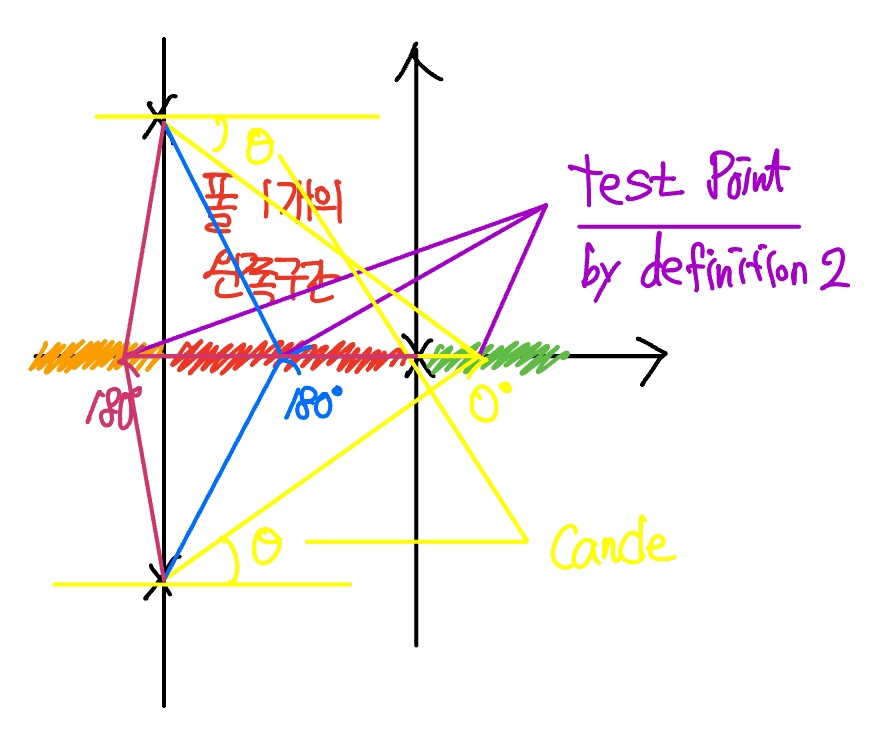 θ
폴 1개의
왼쪽구간
Test Point
by definition 2
180°
180°
0°
θ
Cancle